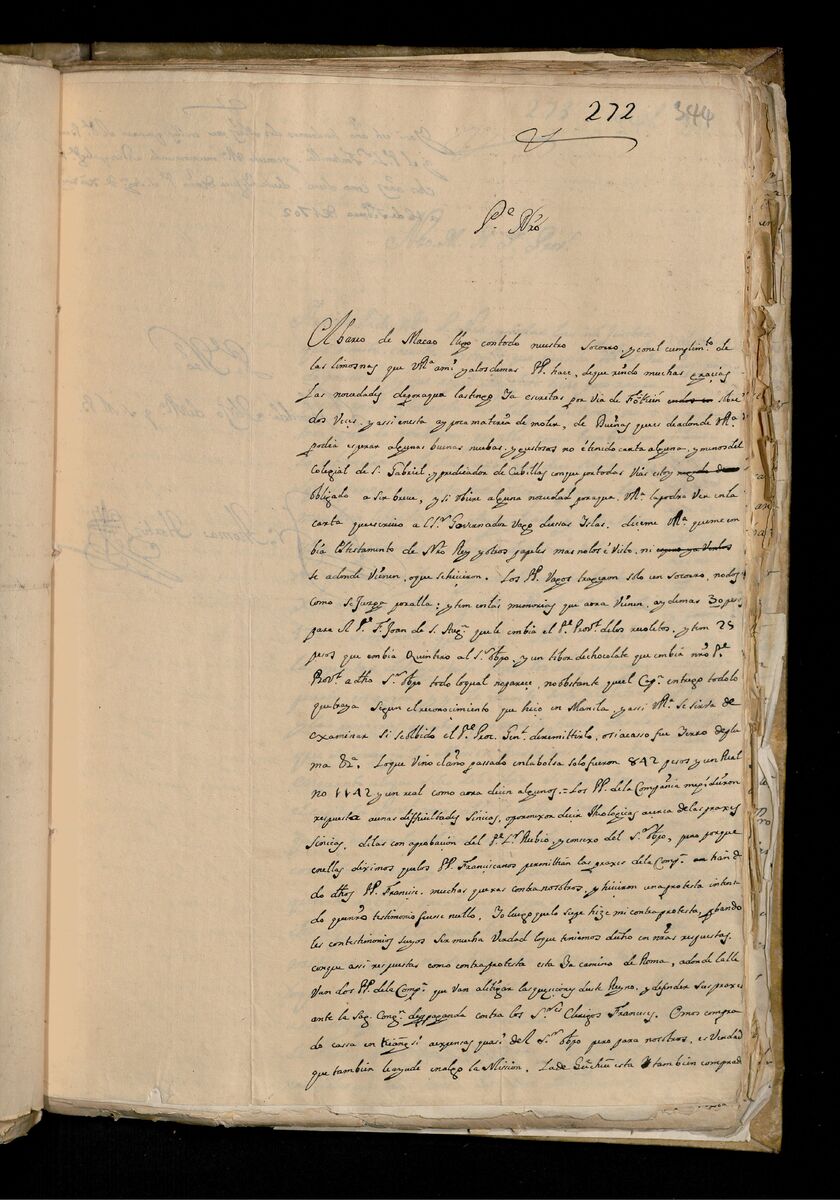 272 344
P.e N̄ro
El barco de Macao llego con todo nuestro Socorro, y con el cumplim.to de
las limosnas que V.R.a ami y alos demas PP. hace, de que rindo muchas gracias
Las novedades de por aqua las tengo Ya escritas por via de Fōkién
dos Veces, y assi en esta ay poca materia de moler, de Buenas pues de adonde V.R.a
podia esperar algunas buenas nuebas, y gustosas no é tenido carta alguna, y menos del
Colegial de S. Gabriel, y predicador de Cubillas con que por todas Vias estoy
obligado a ser breve, y si obiere alguna novedad por aqua, V.R.a la podra Ver en la
carta que escrivo a el S.r Governador Vago de essas Islas. diceme V.R.a que me em
bia El testamento de Nr̄o Rey y otros papeles mas no los é Visto, ni
se adonde Vienen, o que se hicieron. Los PP. Vagos trageron solo un Socorro, no dos
como se Juzga por alla; y tem en las memorias que aora Vienen, ay demas 30 pesos
para el P.e F. Joan de S. Aug.n que le embia el P.e Prov.l de los recoletos, ytem 25
pesos que embia Quintero al S.r obpo, y un tibor de chocolate que embia nr̄o P.e
Prov.l a dho S.r obpo todo lo qual no parece, no obstante que el Cap.n entrego todo lo
que traya segun el reconocimiento que hiço en Manila, y assi V.R.a se sirva de
examinar si se olbido el P.e Proc. Gen.l de remittirlo, o si acasso fue Yerro de plu
ma &a. Lo que Vino el año passado en la bolsa solo fueron 842 pesos y un Real
no 1142 y un real como aora dicen algunos. = Los PP. de la Compañia me pidieron
respuesta a unas difficultades Sinicas, o por mexor decir theologicas acerca de las praxes
Sinicas, dilas con aprobacion del P.e L.r Rubio, y consexo del S.r obpo, pero porque
en ellas diximos que los PP. Franciscanos permithian las praxes de la Comp.a han da
do dhos PP. Francisc. muchas quexas contra nosotros, y hicieron una protesta inten
do que nr̄o testimonio fuesse nullo. Yo luego que lo supe hize mi contraprotesta, probando
les con testimonios suyos Ser mucha Verdad lo que teniamos dicho en nr̄as respuestas.
con que assi respuestas como contraprotesta esta Ya camino de Roma, adonde
Van dos PP. de la Comp.a que Van a litigar las questiones de este Reyno, y defender sus praxes
ante la Sag. Cong.n de propaganda contra los S.res Clerigos Franceses. Emos compra
do cassa en a expensas quasi del S.r obpo pero para nosotros, es Verdad
que tambien le ayude en algo la Mission. La de esta tambien comprad